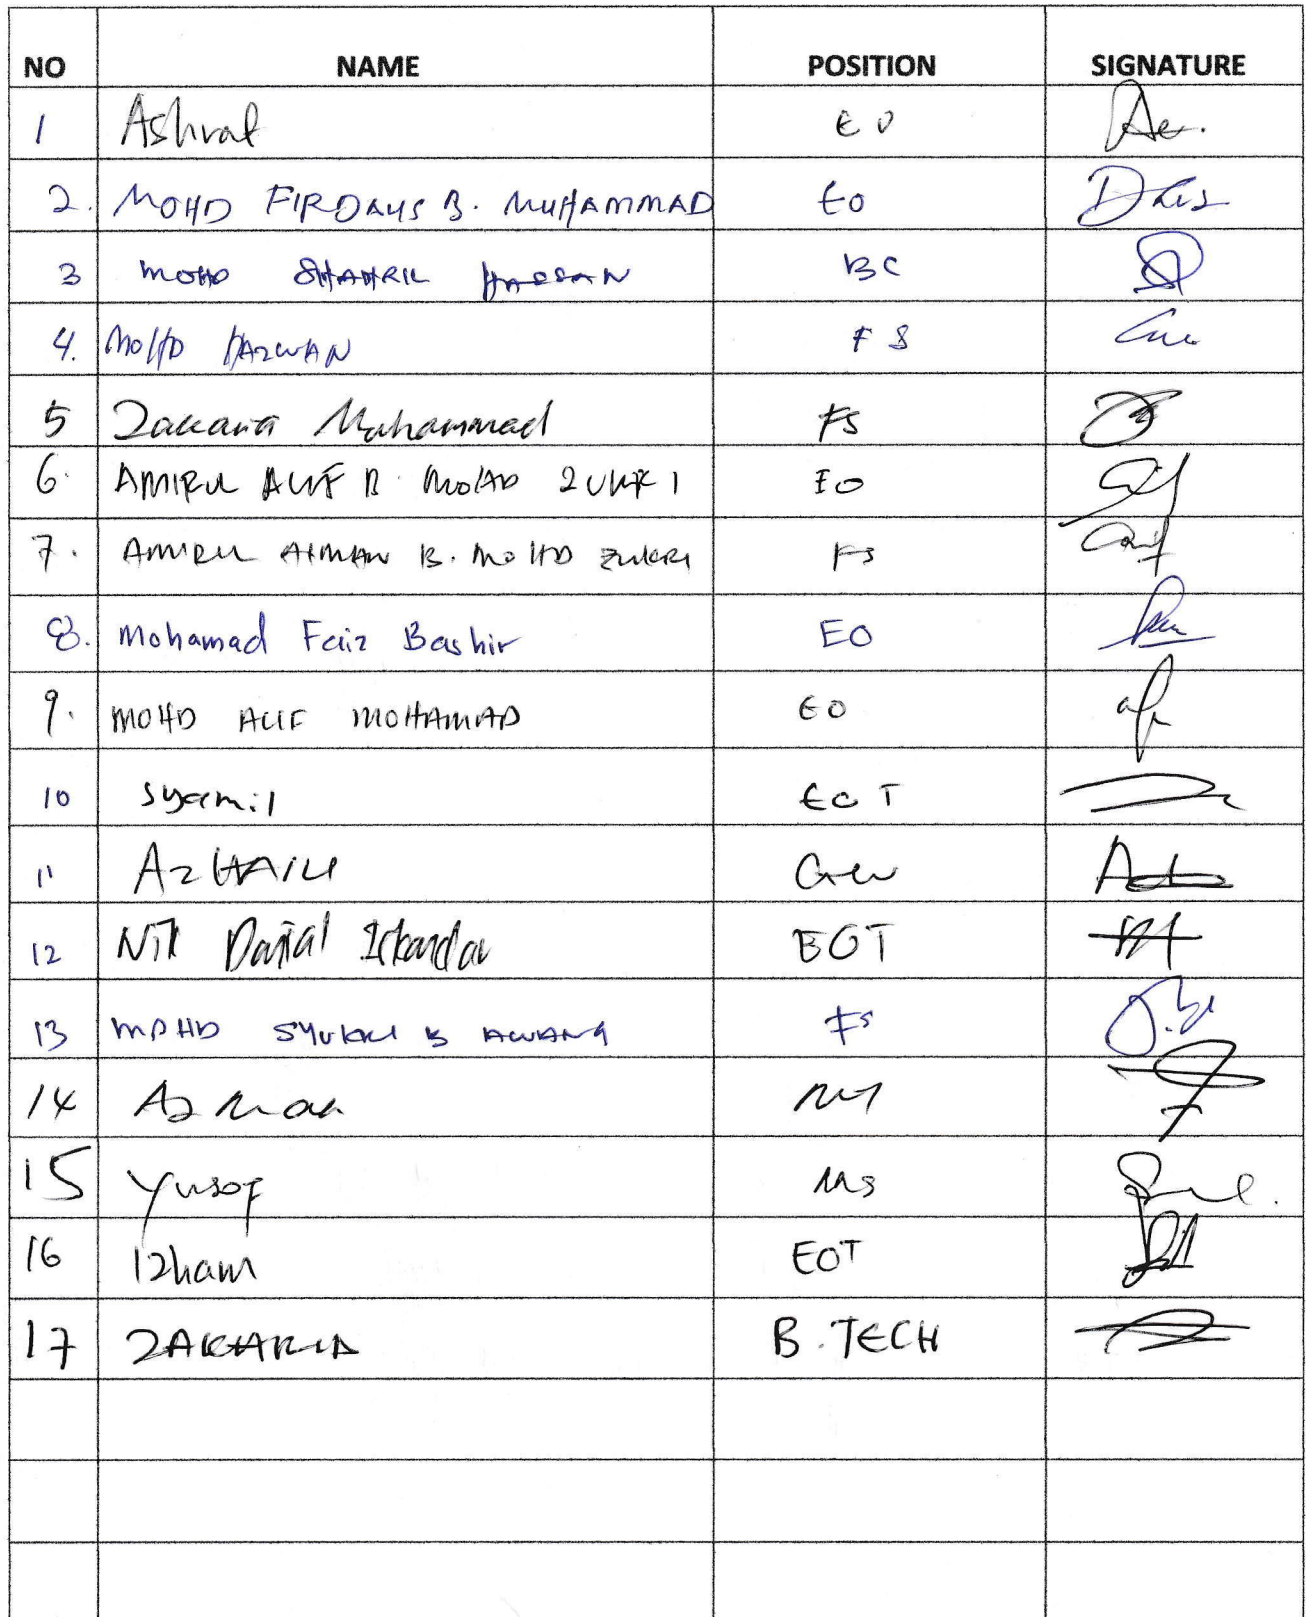 NO NAME POSITION SIGNATURE
1 Ashraf EO
2. MOHD FIRDAUS B. MUHAMMAD EO
3 MOHD SHAHRIL HASSAN BC
4. MOHD HAZWAN FS
5 Zakaria Muhammad FS
6. AMIRUL ALIF B. MOHD ZUKRI EO
7. AMIRUL AIMAN B. MOHD ZUKRI FS
8. Mohamad Faiz Bashir EO
9. MOHD ALIF MOHAMAD EO
10 Syamil EOT
11 AZHAILI Crew
12 Nik Danial Iskandar EOT
13 MOHD SYUKRI B AWANG FS
14 Azman
15 Yusof MS
16 Izham EOT
17 ZAKARIA B.TECH